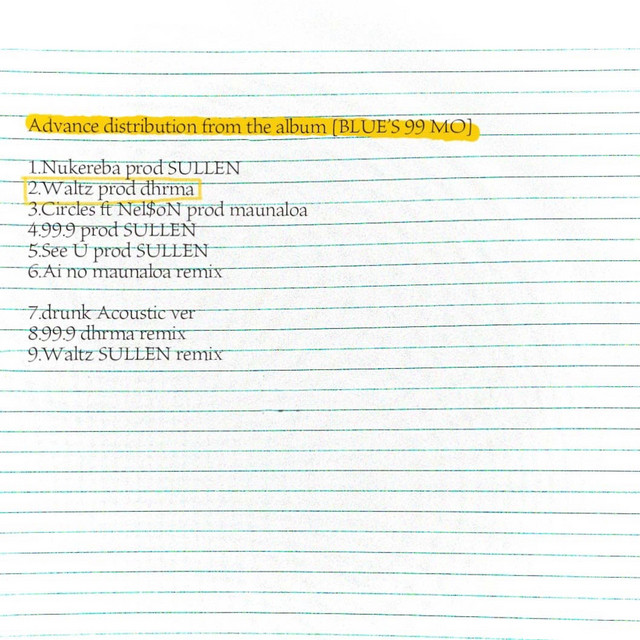 Advance distribution from the album [BLUE'S 99 MO]
1.Nukereba prod SULLEN
2.Waltz prod dhrma
3.Circles ft Nel$oN prod maunaloa
4.99.9 prod SULLEN
5.See U prod SULLEN
6.Ai no maunaloa remix
7.drunk Acoustic ver
8.99.9 dhrma remix
9.Waltz SULLEN remix